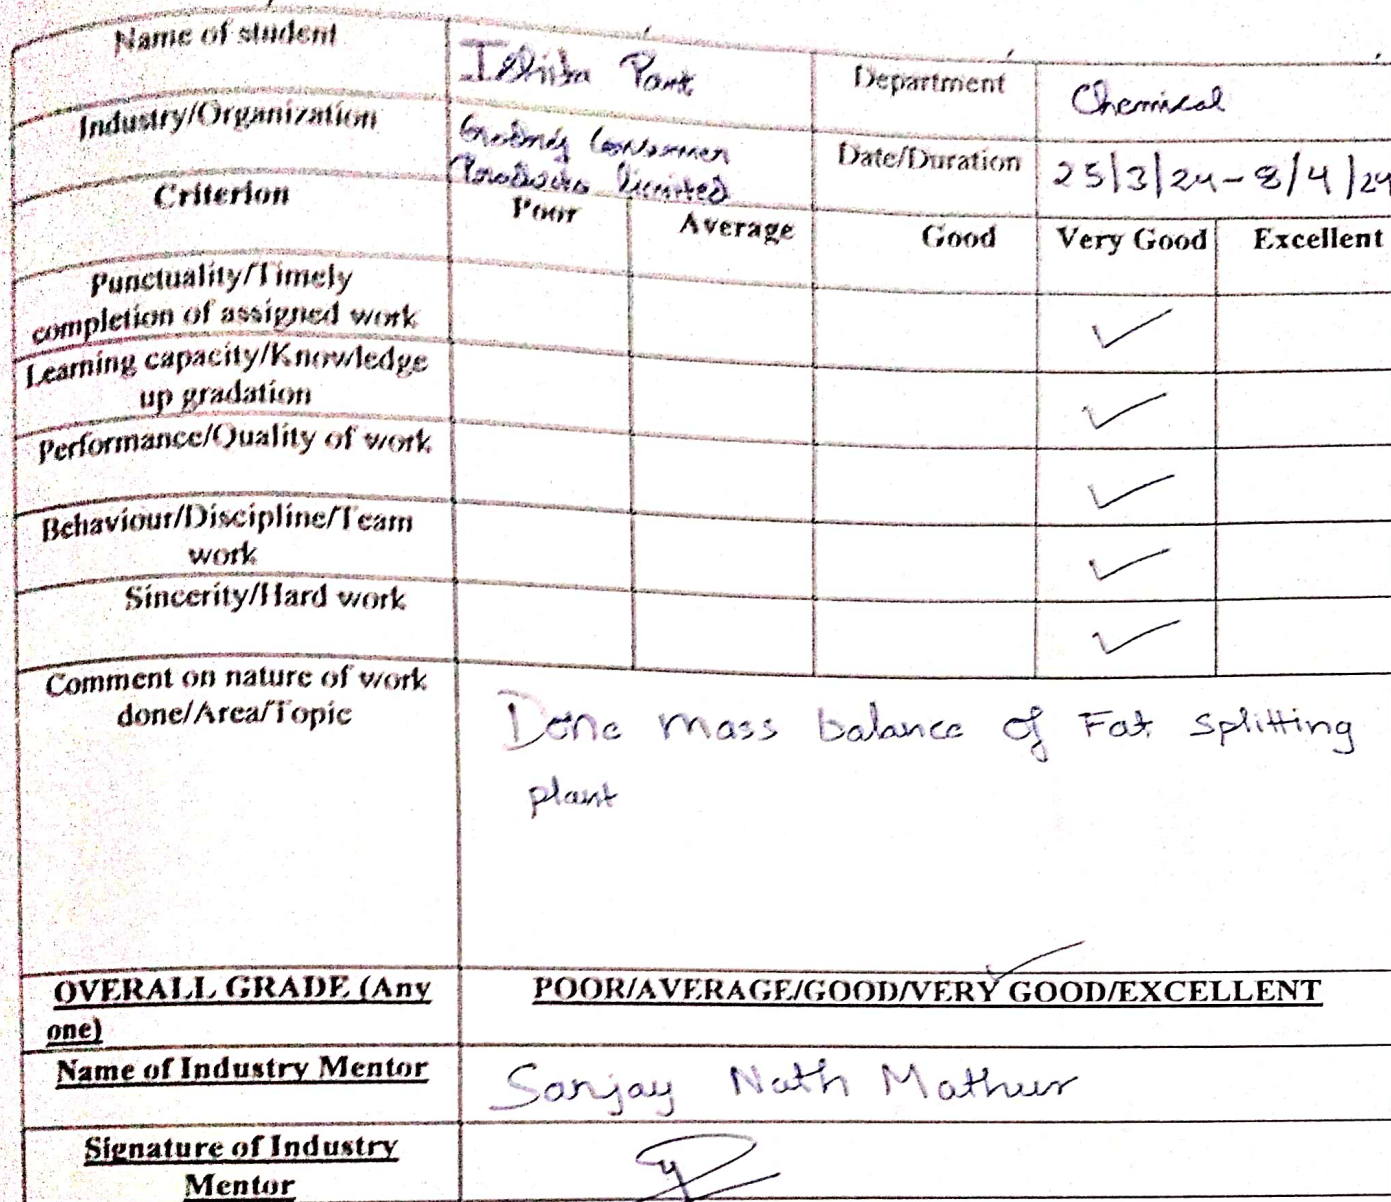 Name of student Ishita Pant Department Chemical
Industry/Organization Consumer Date/Duration 25/3/24-8/4/24
Products limited
Criterion Poor Average Good Very Good Excellent
Punctuality/Timely
completion of assigned work ✓
Learning capacity/Knowledge
up gradation ✓
Performance/Quality of work ✓
Behaviour/Discipline/Team
work ✓
Sincerity/Hard work ✓
Comment on nature of work
done/Area/Topic
Done mass balance of Fat splitting
plant
OVERALL GRADE (Any
one)
POOR/AVERAGE/GOOD/VERY GOOD/EXCELLENT ✓
Name of Industry Mentor Sanjay Nath Mathur
Signature of Industry
Mentor